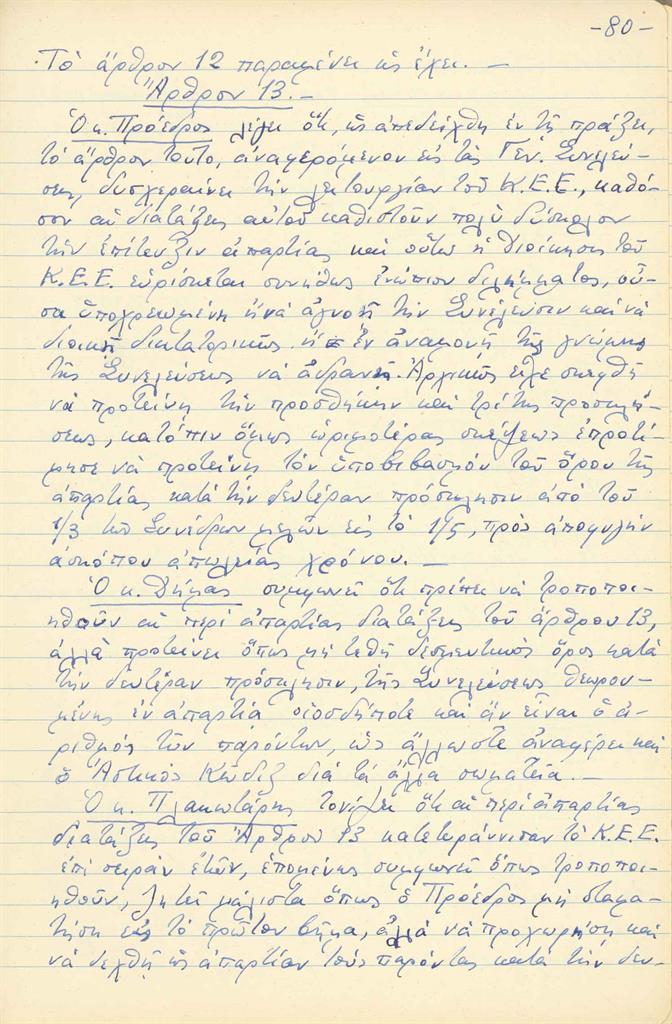 -80-
Τὸ ἄρθρον 12 παραμένει ὡς ἔχει. —
Ἄρθρον 13.—
Ὁ κ. Πρόεδρος λέγει ὅτι, ὡς ἀπεδείχθη ἐν τῇ πράξει,
τὸ ἄρθρον τοῦτο, ἀναφερόμενον εἰς τὰς Γεν. Συνελεύ-
σεις, δυσχεραίνει τὴν λειτουργίαν τοῦ Κ.Ε.Ε., καθό-
σον αἱ διατάξεις αὐτοῦ καθιστοῦν πολὺ δύσκολον
τὴν ἐπίτευξιν ἀπαρτίας καὶ οὕτω ἡ διοίκησις τοῦ
Κ.Ε.Ε. εὑρίσκεται συνήθως ἐνώπιον διλήμματος, οὖ-
σα ὑποχρεωμένη ἢ νὰ ἀγνοῇ τὴν Συνέλευσιν καὶ νὰ
διοικῇ δικτατορικῶς ἢ ἐν ἀναμονῇ τῆς γνώμης
τῆς Συνελεύσεως νὰ ἀδρανῇ. Ἀρχικῶς εἶχε σκεφθῆ
νὰ προτείνῃ τὴν προσθήκην καὶ τρίτης προσκλή-
σεως, κατόπιν ὅμως ὡριμοτέρας σκέψεως ἐπροτί-
μησε νὰ προτείνῃ τὸν ὑποβιβασμὸν τοῦ ὅρου τῆς
ἀπαρτίας κατὰ τὴν δευτέραν πρόσκλησιν ἀπὸ τοῦ
1/3 τῶν Συνέδρων μελῶν εἰς τὸ 1/5, πρὸς ἀποφυγὴν
ἀσκόπου ἀπωλείας χρόνου. —
Ὁ κ. Δήμας συμφωνεῖ ὅτι πρέπει νὰ τροποποι-
ηθοῦν αἱ περὶ ἀπαρτίας διατάξεις τοῦ ἄρθρου 13,
ἀλλὰ προτείνει ὅπως μὴ τεθῇ δεσμευτικὸς ὅρος κατὰ
τὴν δευτέραν πρόσκλησιν, τῆς Συνελεύσεως θεωρου-
μένης ἐν ἀπαρτίᾳ οἱοσδήποτε καὶ ἂν εἶναι ὁ ἀ-
ριθμὸς τῶν παρόντων, ὡς ἄλλωστε ἀναφέρει καὶ
ὁ Ἀστικὸς Κῶδιξ διὰ τὰ ἄλλα σωματεῖα. —
Ὁ κ. Πλακωτάρης τονίζει ὅτι αἱ περὶ ἀπαρτίας
διατάξεις τοῦ Ἄρθρου 13 κατετυράννισαν τὸ Κ.Ε.Ε.
ἐπὶ σειρὰν ἐτῶν, ἑπομένως συμφωνεῖ ὅπως τροποποι-
ηθοῦν, ζητεῖ μάλιστα ὅπως ὁ Πρόεδρος μὴ σταμα-
τήσῃ εἰς τὸ πρῶτον βῆμα, ἀλλὰ νὰ προχωρήσῃ καὶ
νὰ δεχθῇ ὡς ἀπαρτίαν τοὺς παρόντας κατὰ τὴν δευ-